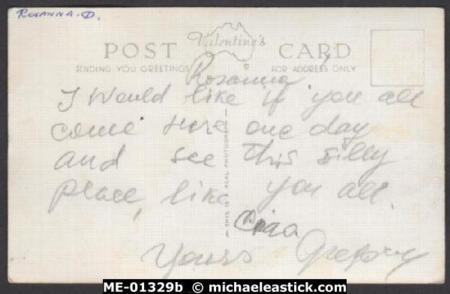 ROSANNA.D.
POST Valentine's CARD
SENDING YOU GREETINGS FOR ADDRESS ONLY
Rosanna
I would like if you all
come here one day
and see this silly
place, like you all.
Ciao
Yours Gregory
THIS IS A REAL PHOTOGRAPH
ME-01329b © michaeleastick.com